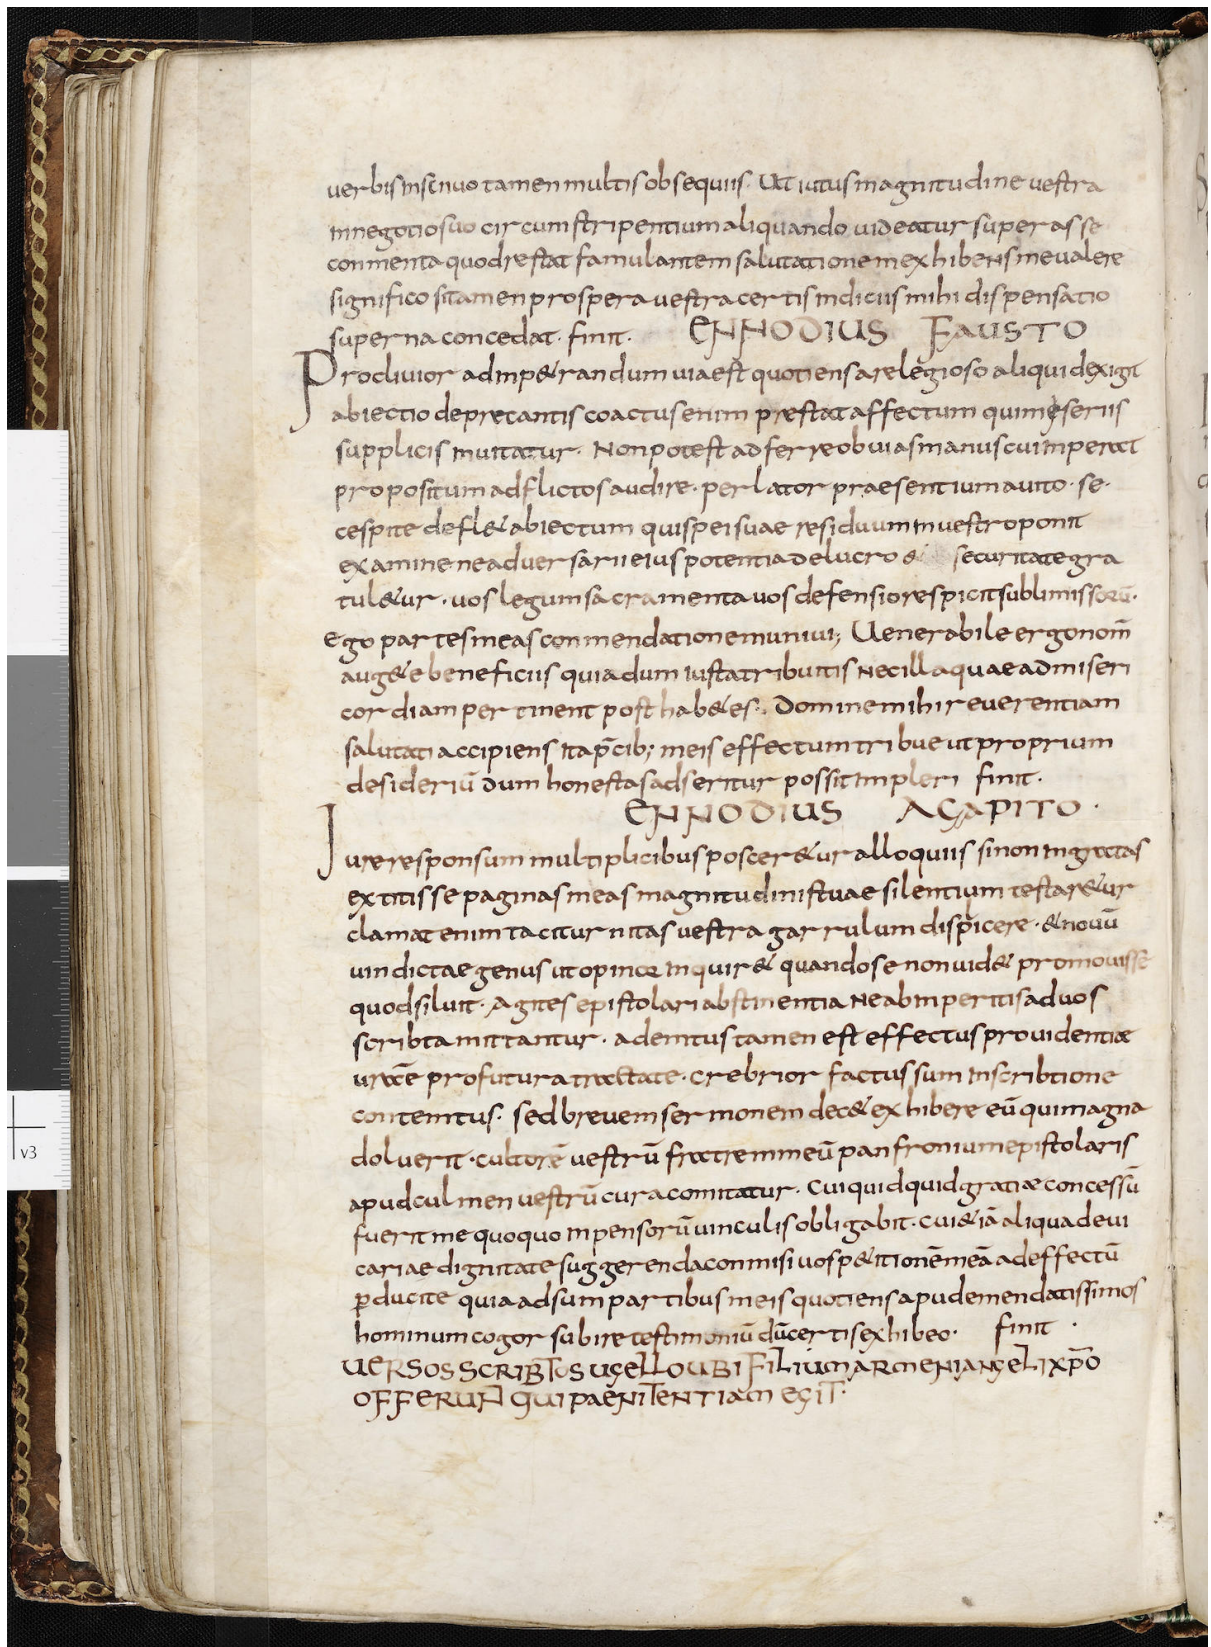 uerbis inscinuo tamen multis obsequiis. Ut iutus magnitudine uestra
in negotio suo circumstripentium aliquando uideatur superasse
conmenta quod restat famulantem salutationem exhibens me ualere
significo si tamen prospera uestra certis indiciis mihi dispensatio
superna concedat. finit. ENNODIUS FAUSTO
Procliuior ad inp&randum uia est quotiens a relegioso aliquid exigit
abiectio deprecantis coactus enim prestat affectum qui meseriis
supplicis inuitatur. Non potest adferre obuias manus cui inperat
propositum adflictos audire. perlator praesentium auito. se.
cespite defl& abiectum qui spei suae residuum in uestro ponit
examine ne aduersarii eius potentia de lucro & securitate gra
tul&ur. uos legum sacramenta uos defensio respicit sublimissorū.
Ego partes meas conmendatione muniui; Uenerabile ergo nom̄
aug&e beneficiis quia dum iusta tribuitis nec illa quae ad miseri
cordiam pertinent posthab&es. Domine mihi reuerentiam
salutati accipiens ita p̄cib; meis effectum tribue ut proprium
desideriū dum honestas adseritur possit impleri finit.
ENNODIUS AGAPITO.
Iure responsum multiplicibus poscer&ur alloquiis si non ingratas
extitisse paginas meas magnitudinis tuae silentium testar&ur
clamat enim taciturnitas uestra garrulum dispicere. & nouū
uindictae genus ut opinor inquir& quando se non uid& promouisse
quod siluit. Agites epistolari abstinentia ne ab inperitis ad uos
scribta mittantur. ademtus tamen est effectus prouidentiæ
uræ profutura tractate. crebrior factus sum inscribtione
contemtus. sed breuem sermonem dec& exhibere eū qui magna
doluerit. cultorē uestrū fratrem meū panfronium epistolaris
apud culmen uestrū cura comitatur. Cui quidquid gratiæ concessū
fuerit me quoquo inpensorū uinculis obligabit. cui &iā aliqua de ui
cariae dignitate suggerenda conmisi uos p&itionē meā ad effectū
ꝑducite quia adsum partibus meis quotiens apud emendatissimos
hominum cogor subire testimoniū dū certis exhibeo. finit.
UERSOS SCRIBTOS UGELLO UBI FILIUM ARMENI ANGELI XP̄O
OFFERUN̄ QUI PAENITENTIAM EGIT.